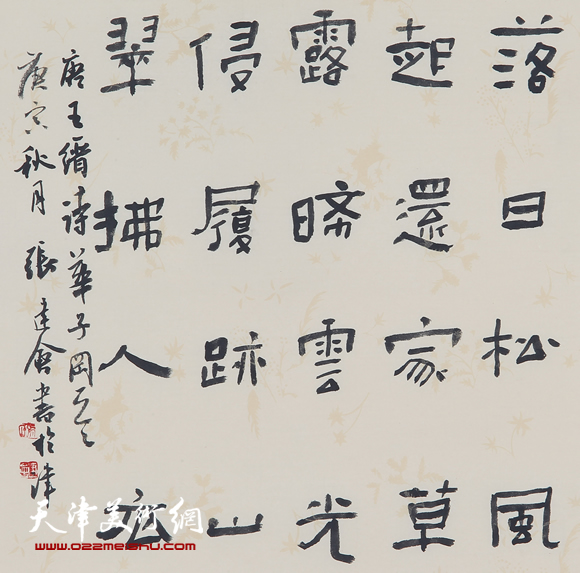 落日松風
起還家草
露晞雲光
侵履跡山
翠拂人衣
唐王縉詩華子岡
庚寅秋月 張建會書於津
天津美術網
www.022meishu.com